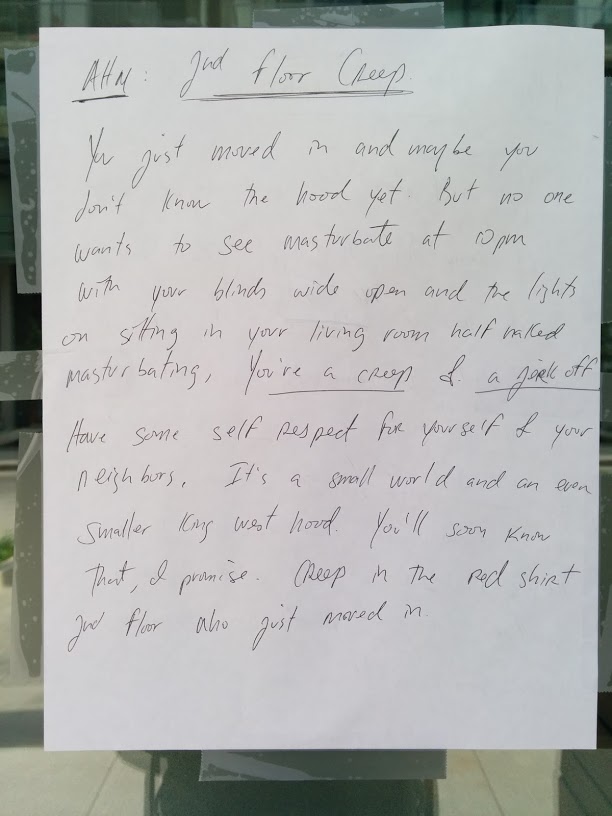 AHM: 2nd floor Creep.
You just moved in and maybe you
don't know the hood yet. But no one
wants to see masturbate at 10pm
with your blinds wide open and the lights
on sitting in your living room half naked
masturbating, You're a creep & a jerk off
Have some self respect for yourself & your
neighbors. It's a small world and an even
smaller King west hood. You'll soon know
that, I promise. Creep in the red shirt
2nd floor who just moved in.